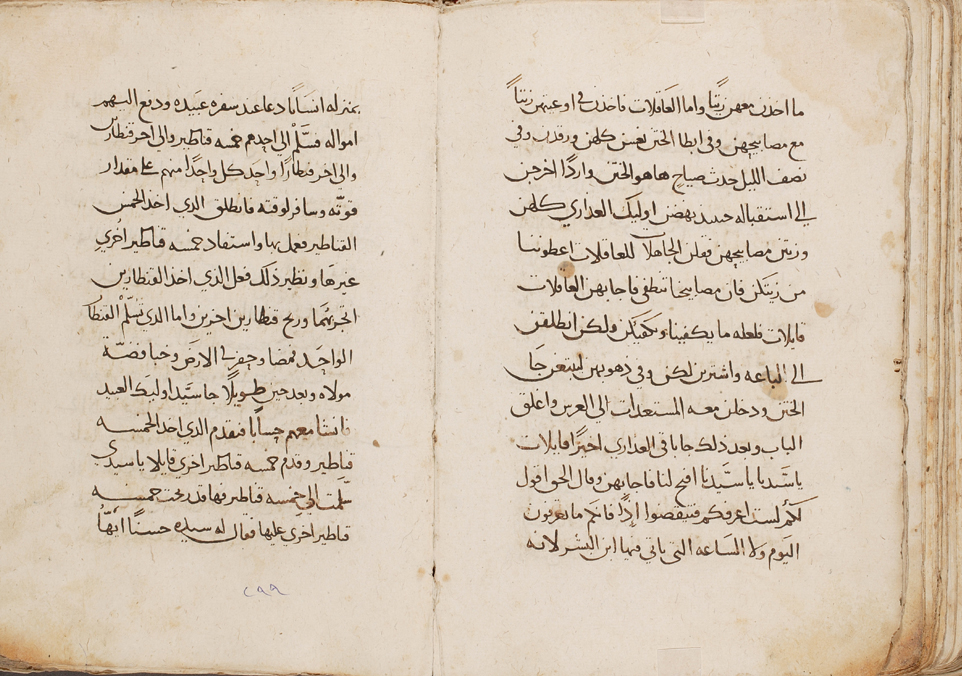 ما اخذن معهن زيتًا واما العاقلات فاخذن في اوعيتهن زيتًا
مع مصابيحهن وفي ابطا الختن نعسن كلهن ورقدن وفي
نصف الليل حدث صياح هاهو الختن واردًا اخرجن
الي استقباله حينيد نهضن اوليك العذاري كلهن
وزين مصابيحهن فقلن الجاهلات للعاقلات اعطوننا
من زيتكن فان مصابيحنا تنطفي فاجابهن العاقلات
قايلات فلعله ما يكفينا ويكفيكن ولكن انطلقن
الي الباعه واشترين لكن وفي ذهوبهن ليبتعن جا
الختن ودخلن معه المستعدات الي العرس واغلق
الباب وبعد ذلك جا باقي العذاري اخيرًا قايلات
يا سَيدنا يا سَيدنا افتح لنا فاجابهن وقال الحق اقول
لكم لست اعرفكم فتيقضوا اذًا فانكم ما تعرفون
اليوم ولا السَاعه التي ياتي فيها ابن البشر لانه
بمنزله انسَانًا دعا عند سفره عبيده ودفع اليهم
امواله فسَلّم الي احدهم خمسه قناطير والي اخر قنطارين
والي اخر قنطارًا واحد كل واحدًا منهم علي مقدار
قوته وسافر لوقته فانطلق الذي اخذ الخمس
القناطير فعمل بها واستفاد خمسه قناطير اخري
غيرها ونظير ذلك فعل الذي اخذ القنطارين
اتجر بهما وربح قنطارين اخرين واما الذي تسَلّم القنطار
الواحد فمضا وحفر في الارض وخبا فضّة
مولاه وبعد حين طويلًا جا سَيد اوليك العبيد
فانشا معهم حسابًا فتقدم الذي اخذ الخمسه
قناطير وقدم خمسه قناطير اخري قايلا يا سيدي
سَلمت الي خمسه قناطير فها قد ربحت خمسه
قناطير اخري عليها فقال له سيده حسنًا ايّها
٢٩٩